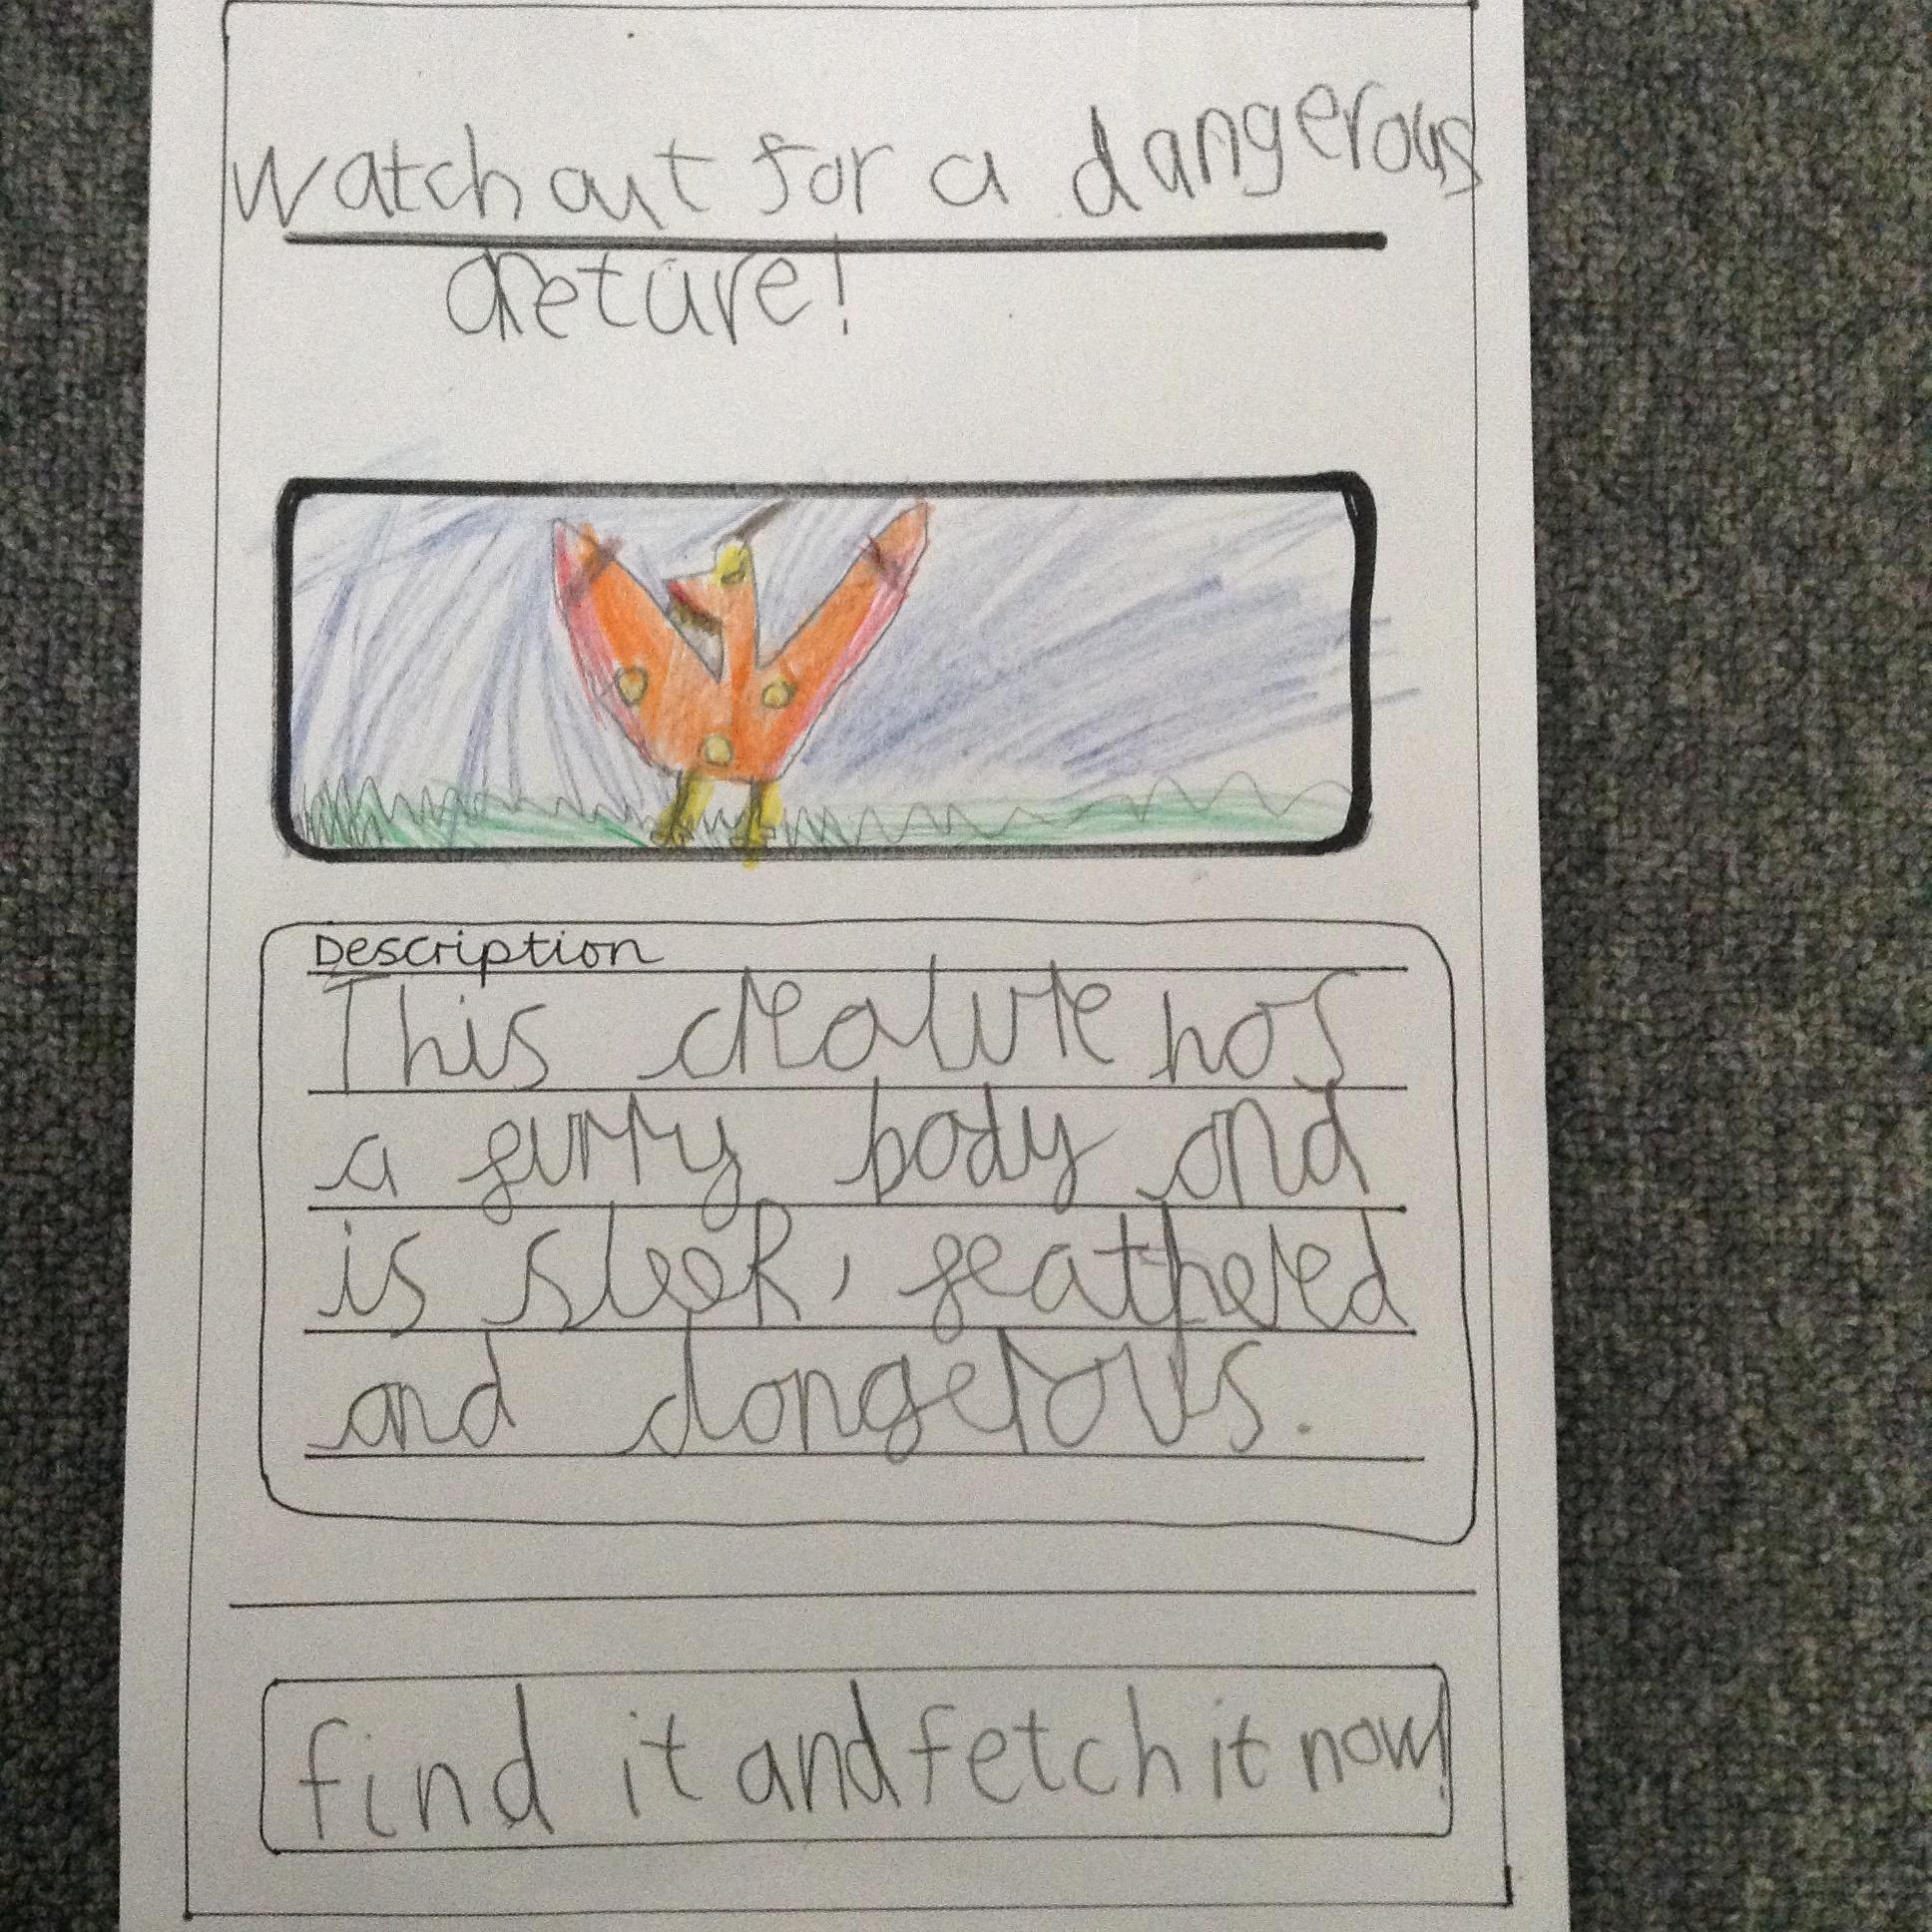 Watch out for a dangerous
creture!
Description
This creature has
a furry body and
is sleek, feathered
and dangerous.
find it and fetch it now!